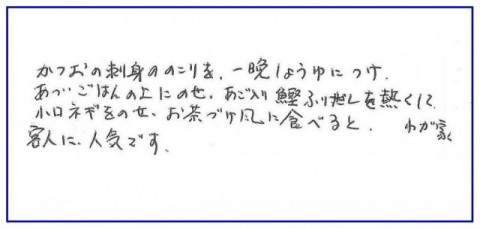 かつおの刺身ののこりを、一晩しょうゆにつけ、
あついごはんの上にのせ、あご入り鰹ふりだしを熱くして
小口ネギをのせ、お茶づけ風に食べると、 わが家
客人に、人気です。